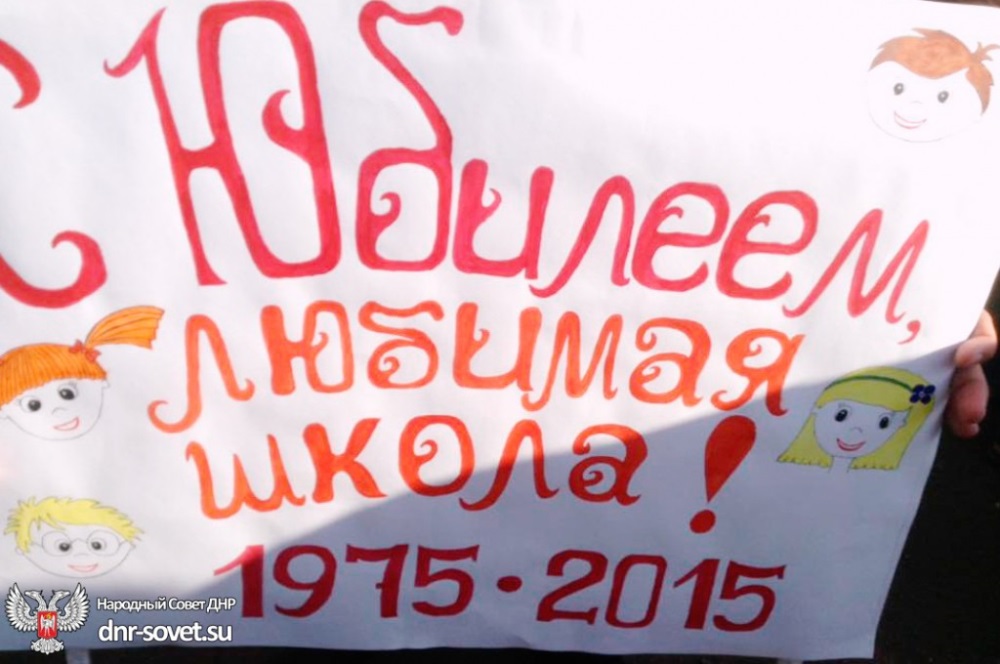 С Юбилеем,
любимая
школа!
1975·2015
Народный Совет ДНР
dnr-sovet.su